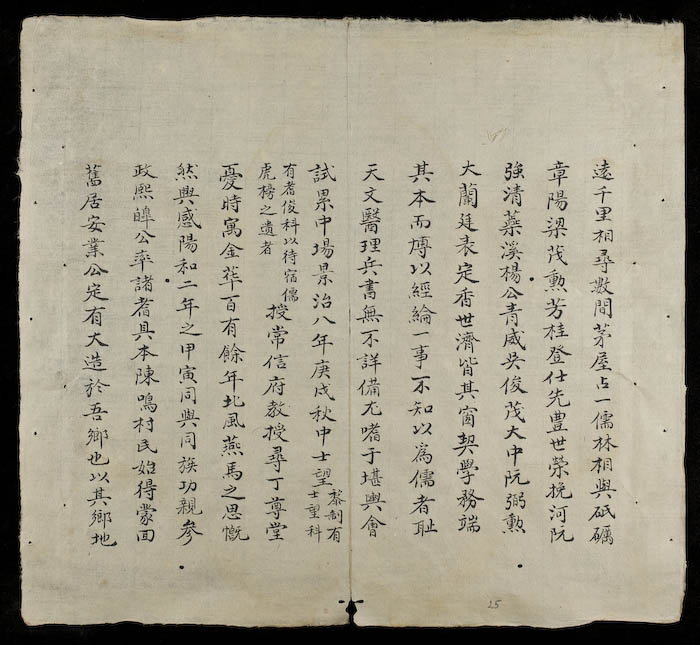 遠千里相尋數間茅屋占一儒林相與砥礪
章陽梁茂勲芳桂登仕先豊世榮挽河阮
強清蘂溪楊公青威吳俊茂大中阮弼勲
大蘭廷表定香世濟皆其窗契學務端
其本而博以經綸一事不知以爲儒者耻
天文醫理兵書無不詳備尤嗜于堪輿會
試累中場景治八年庚戌秋中士望黎制有士望科
有者俊科以待宿儒虎榜之遺者授常信府教授尋丁尊堂
憂時寓金華百有餘年北風燕馬之思慨
然與感陽和二年之甲寅同與同族功親參
政熙皥公率諸耆具本陳鳴村民始得蒙回
舊居安業公定有大造於吾鄉也以其鄉地
25